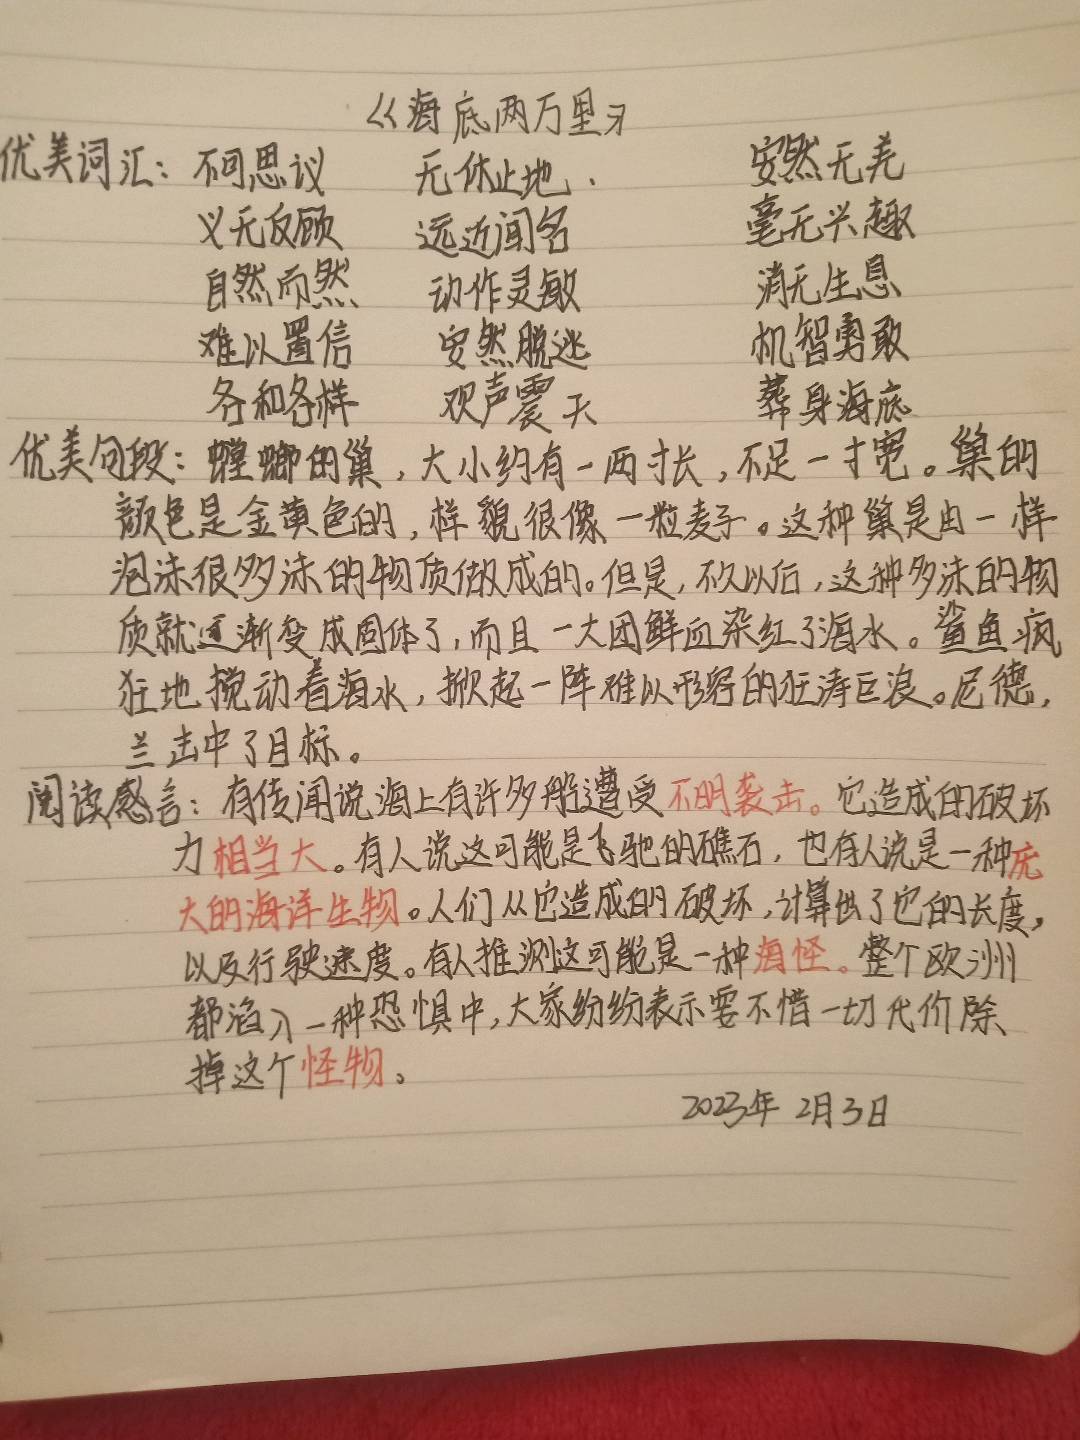 《海底两万里》
优美词汇：不可思议 无休止地. 安然无恙
义无反顾 远近闻名 毫无兴趣
自然而然 动作灵敏 消无生息
难以置信 安然脱逃 机智勇敢
各和各样 欢声震天 葬身海底
优美句段：螳螂的巢，大小约有一两寸长，不足一寸宽。巢的
颜色是金黄色的，样貌很像一粒麦子。这种巢是由一样
泡沫很多沫的物质做成的。但是，不久以后，这种多沫的物
质就逐渐变成固体了，而且一大团鲜血染红了海水。鲨鱼疯
狂地搅动着海水，掀起一阵难以形容的狂涛巨浪。尼德，
兰击中了目标。
阅读感言：有传闻说海上有许多船遭受不明袭击。它造成的破坏
力相当大。有人说这可能是飞驰的礁石，也有人说是一种庞
大的海洋生物。人们从它造成的破坏，计算出了它的长度，
以及行驶速度。有人推测这可能是一种海怪。整个欧洲
都陷入一种恐惧中，大家纷纷表示要不惜一切代价除
掉这个怪物。
2023年 2月3日